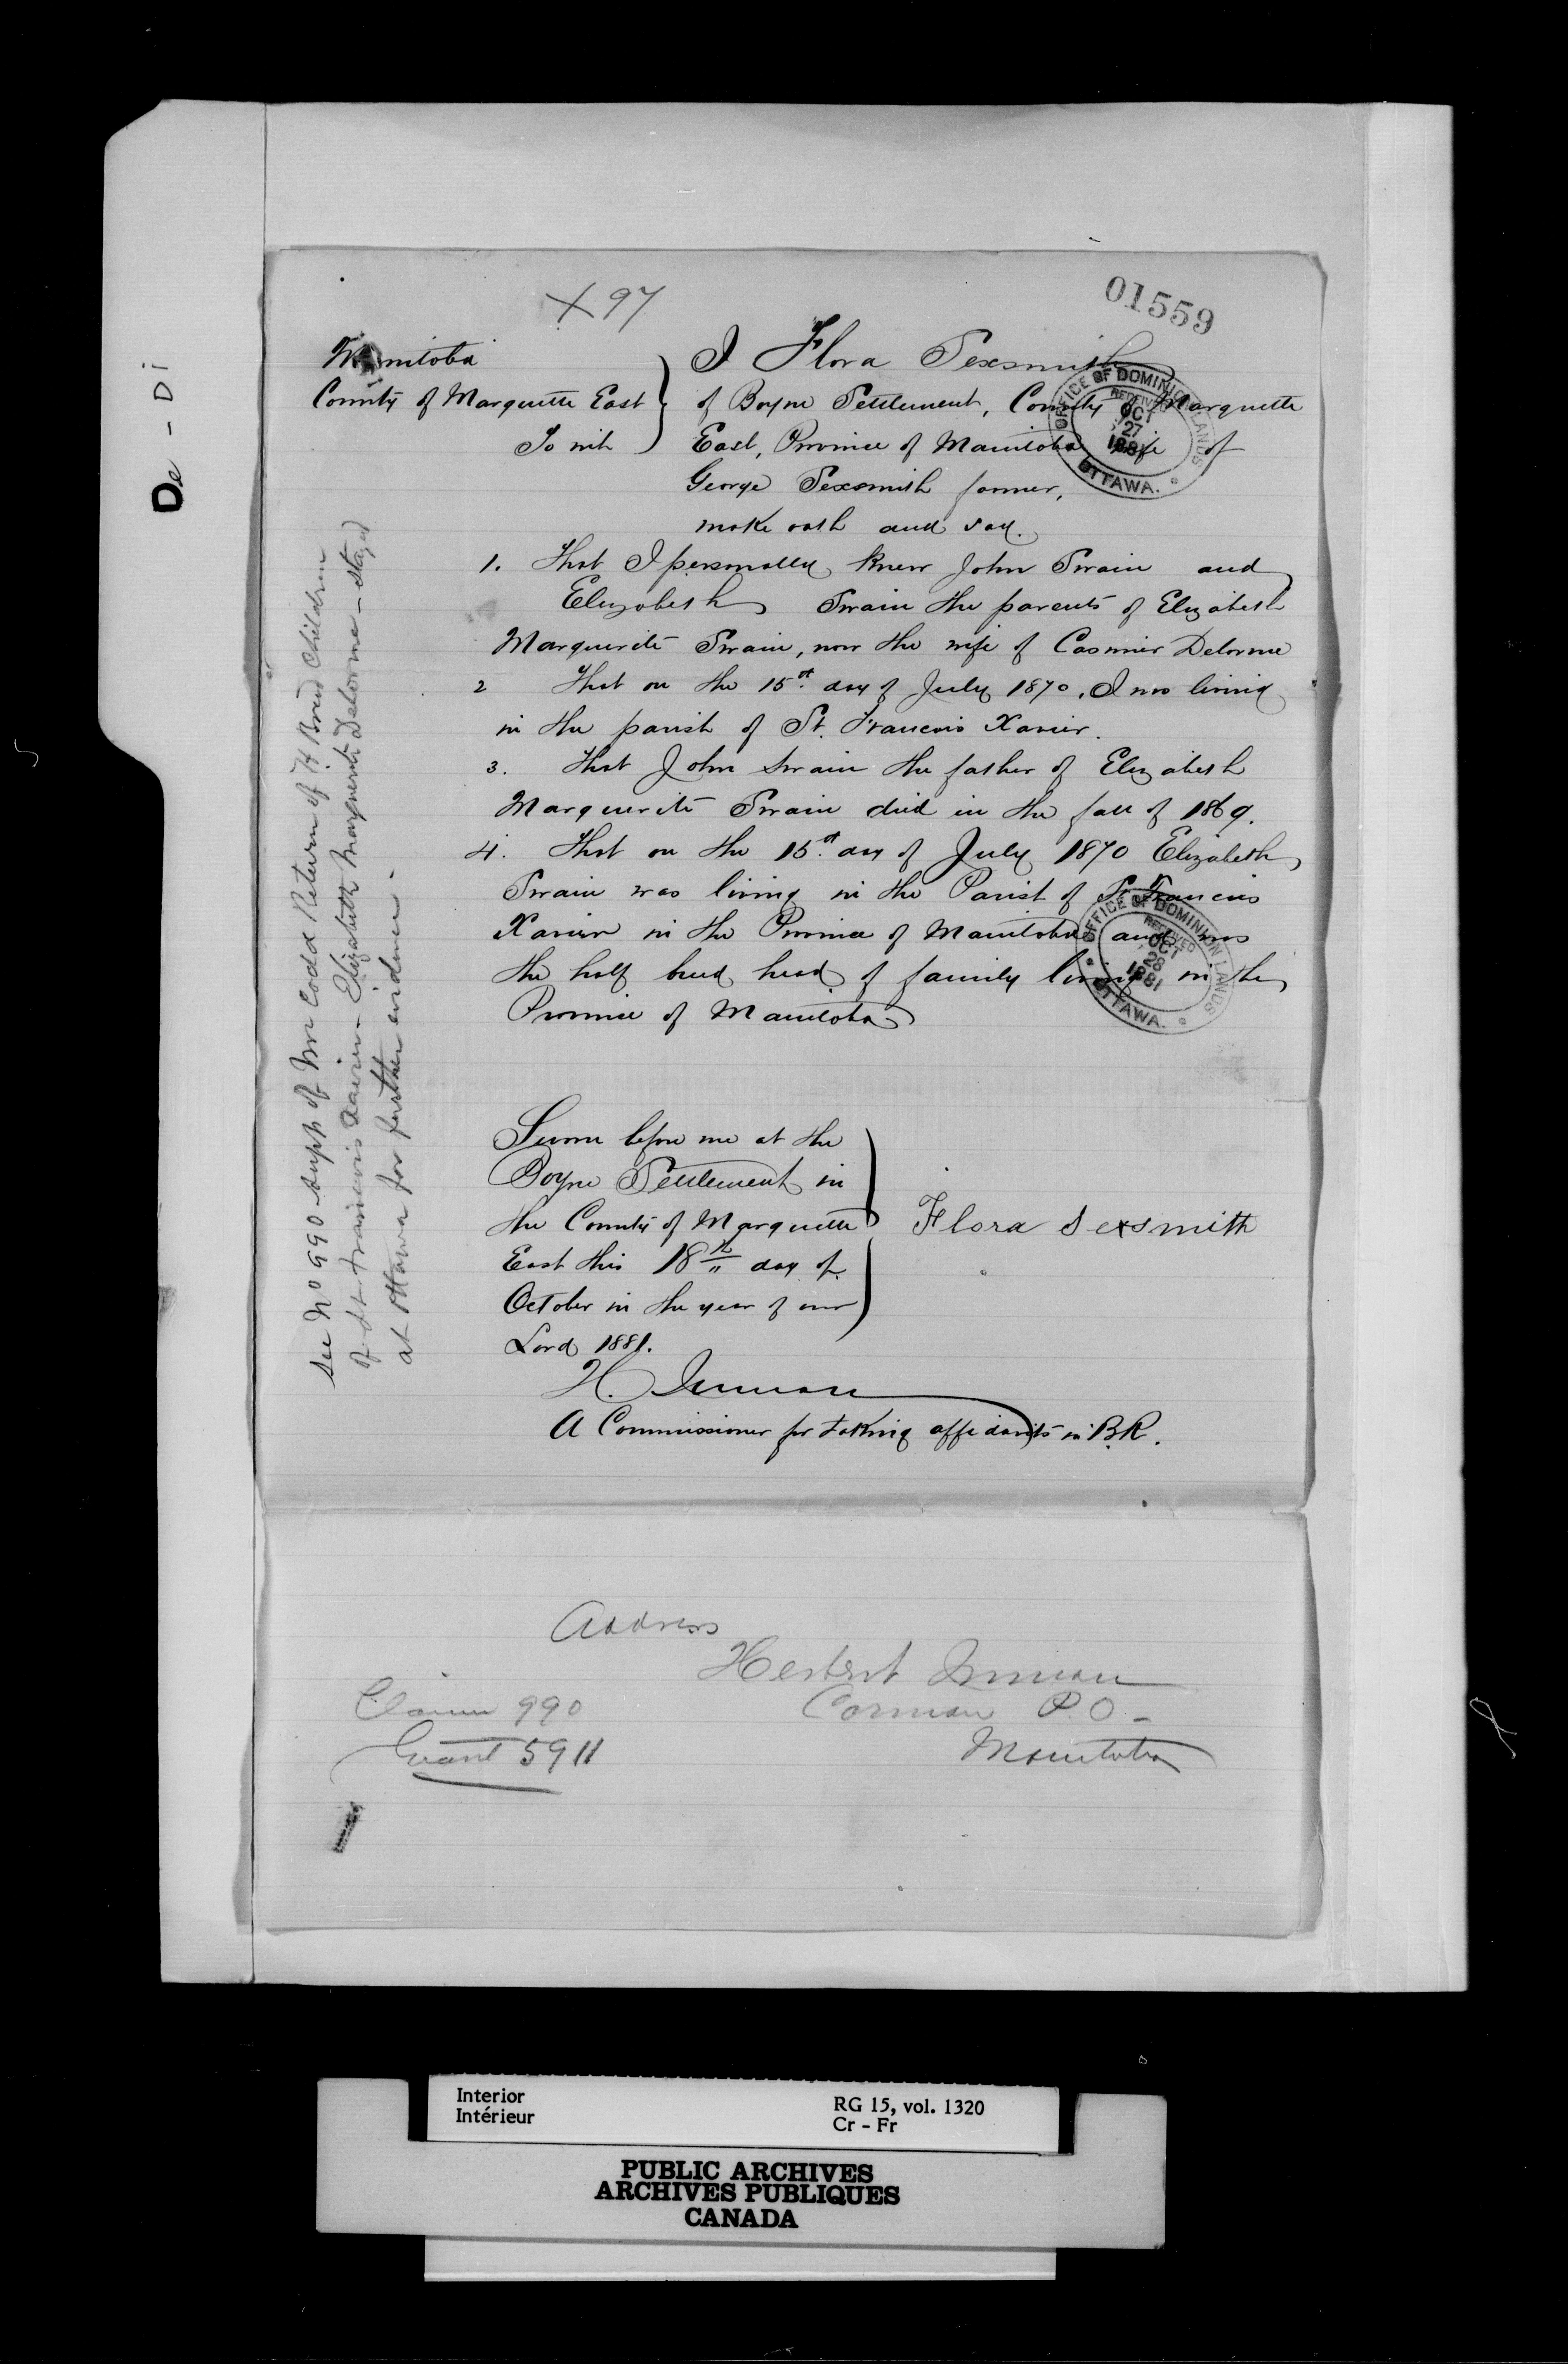 De - Di
X 97
01559
Manitoba
County of Marquette East
To wit
I Flora Sexsmith
of Boyne Settlement, County of Marquette
East, Province of Manitoba wife of
George Sexsmith farmer,
make oath and say.
1. That I personally knew John Swain and
Elizabeth Swain the parents of Elizabeth
Marguerite Swain, now the wife of Casimir Delorme
2 That on the 15st. day of July 1870, I was living
in the parish of St. Francois Xavier.
3. That John Swain the father of Elizabeth
Marguerite Swain died in the fall of 1869.
4. That on the 15st. day of July 1870 Elizabeth
Swain was living in the Parish of St. Francois
Xavier in the Province of Manitoba and was
the half breed head of family living in the
Province of Manitoba
OFFICE OF DOMINION LANDS
RECEIVED
OCT
27
1881
OTTAWA.
OFFICE OF DOMINION LANDS
RECEIVED
OCT
28
1881
OTTAWA.
See No 990 Supp of Mr Codd Return of H Breed Children
of St Francois Xavier - Elizabeth Marguerite Delorme - stayed
at Ottawa for further evidence -
Sworn before me at the
Boyne Settlement in
the County of Marquette
East this 18th day of
October in the year of our
Lord 1881.
Flora Sexsmith
H. Inman
A Commissioner for taking affidavits in B.R.
Address
Herbert Inman
Carman P.O -
Manitoba
Claim 990
Grant 5911
Interior
Intérieur
RG 15, vol. 1320
Cr - Fr
PUBLIC ARCHIVES
ARCHIVES PUBLIQUES
CANADA